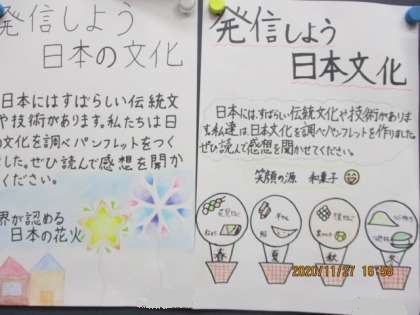 発信しよう
日本の文化
日本にはすばらしい伝統文
や技術があります。私たちは日
の文化を調べパンフレットをつく
した。ぜひ読んで感想を聞か
ください。
界が認める
日本の花火
発信しよう
日本文化
日本には、すばらしい伝統文化や技術があり
ます。私達は、日本文化を調べパンフレットを作りました。
ぜひ読んで感想を聞かせてください。
笑顔の源 和菓子
春
夏
秋
冬
2020/11/27